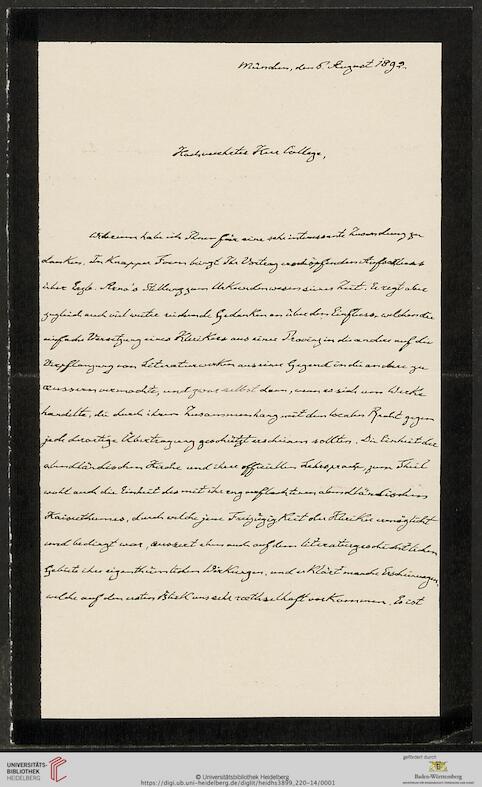 München, den 5. August 1892.
Hochverehrter Herr College,
Wiederum habe ich Ihnen für eine sehr interessante Zusendung zu
danken. In knapper Form birgt Ihr Vortrag erschöpfenden Aufschluss
über Erzb. Arno's Stellung zum Urkundenwesen seiner Zeit. Er regt aber
zugleich auch viel weiter reichende Gedanken an über den Einfluss, welchen die
einfache Versetzung eines Klerikers aus einer Provinz in die andere auf die
Verpflanzung von Literaturwerken aus einer Gegend in die andere zu
äussern vermochte, und zwar selbst dann, wenn es sich um Werke
handelte, die durch ihren Zusammenhang mit dem localen Recht gegen
jede derartige Übertragung geschützt erscheinen sollten. Die Einheit der
abendländischen Kirche und ihrer officiellen Lehrsprache, zum Theil
wohl auch die Einheit des mit ihr eng verflochtenen abendländischen
Kaiserthumes, durch welche jene Freizügigkeit der Kleriker ermöglicht
und bedingt war, äussert eben auch auf dem literaturgeschichtlichen
Gebiete ihre eigenthümlichen Wirkungen, und erklärt manche Erscheinungen,
welche auf den ersten Blick uns sehr räthselhaft vorkommen. Es ist
UNIVERSITÄTS-
BIBLIOTHEK
HEIDELBERG
© Universitätsbibliothek Heidelberg
https://digi.ub.uni-heidelberg.de/diglit/heidhs3899_220-14/0001
gefördert durch
Baden-Württemberg